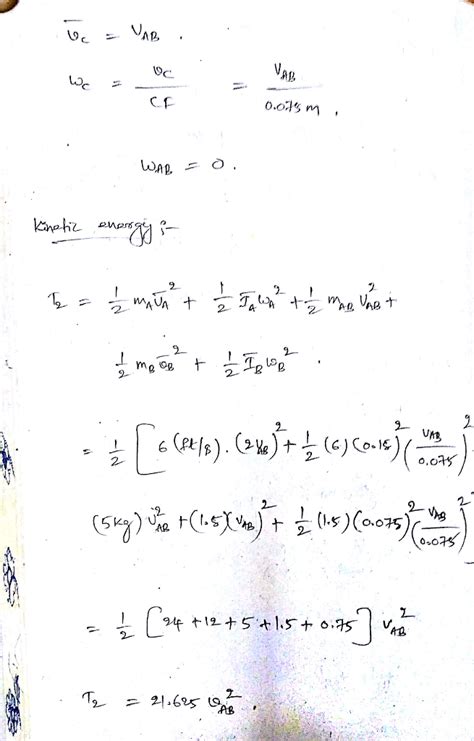 v̄c = VAB .
ωc = vc / CF = VAB / 0.075 m ,
ωAB = 0 .
Kinetic energy :-
T2 = 1/2 mA v̄A² + 1/2 ĪA ωA² + 1/2 mAB VAB² +
1/2 mB v̄B² + 1/2 ĪB ωB² .
= 1/2 [ 6 (ft/s) . (2VB)² + 1/2 (6) (0.15)² (VAB / 0.075)²
(5kg) v²AB + (1.5) (VAB)² + 1/2 (1.5) (0.075)² (VAB / 0.075)² ]
= 1/2 [ 24 + 12 + 5 + 1.5 + 0.75 ] VAB²
T2 = 21.625 v²AB .